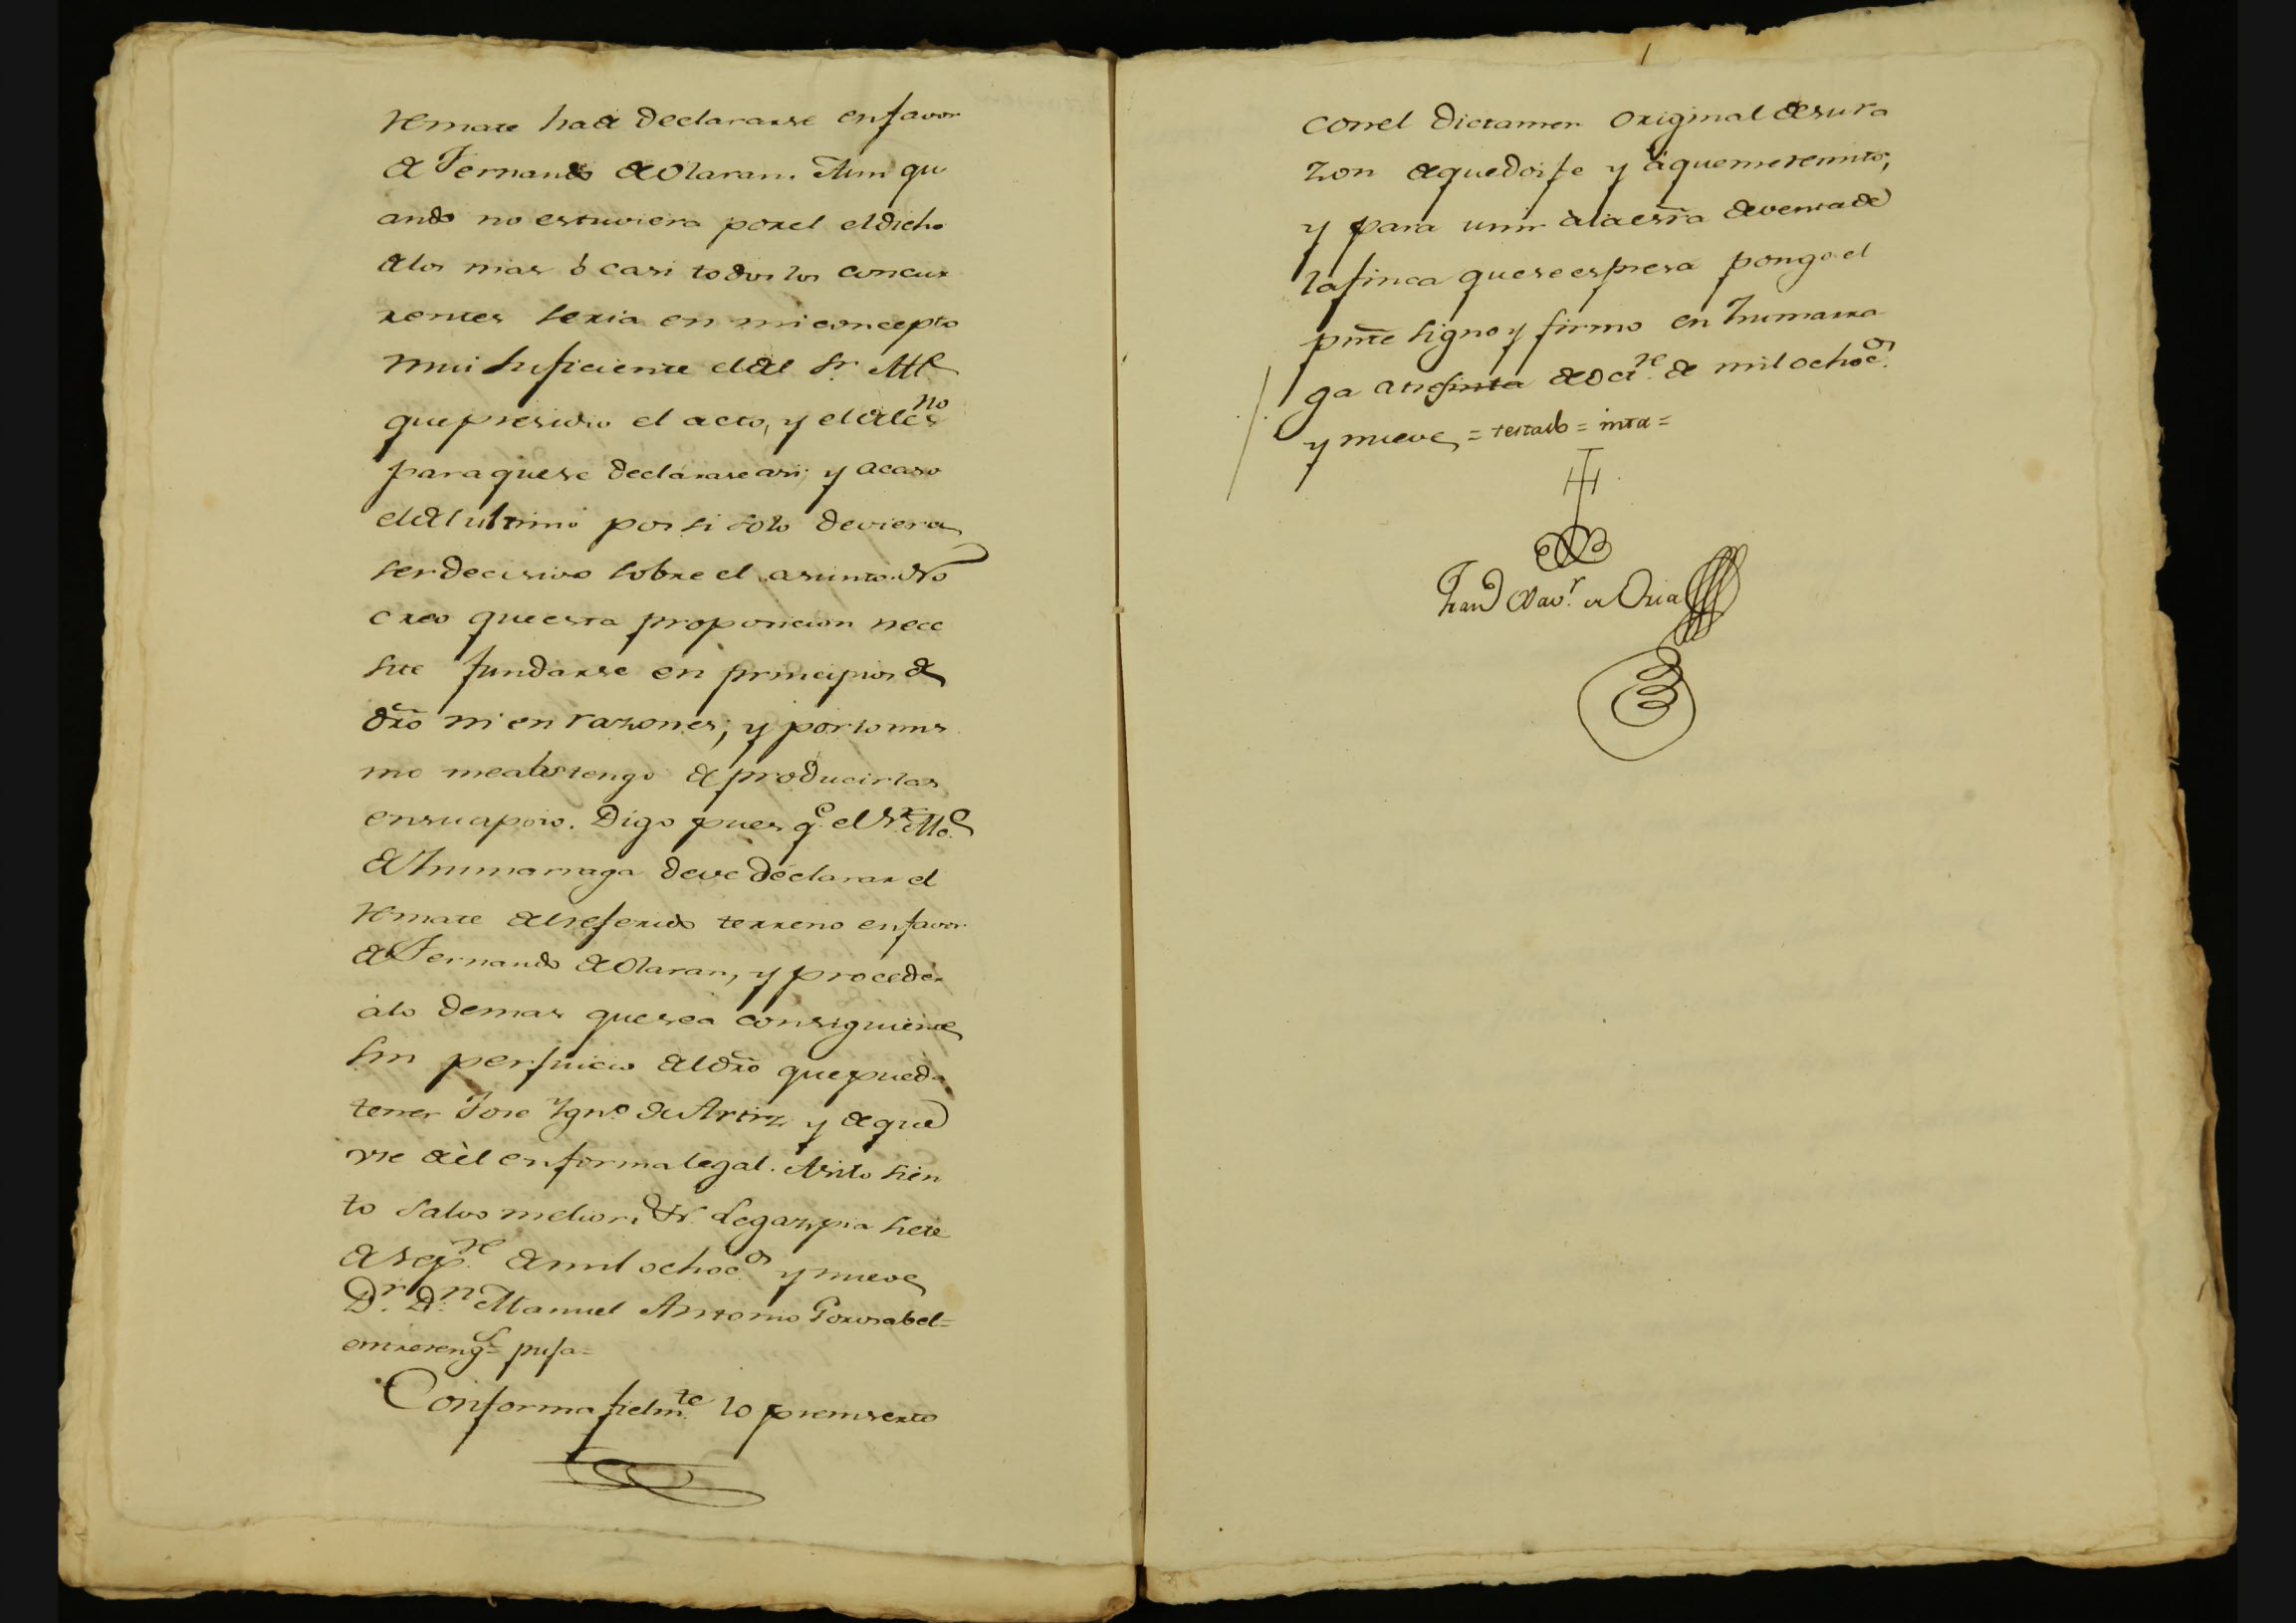 remate ha de declararse en favor
de Fernando de Olaran. Aun qu
ando no estuviera por el el dicho
de los mas ó casi todos los concur
rentes seria en mi concepto
mui suficiente el del Sr. Alc.e
que presidio el acto, y el del es.no
para que se declarase asi; y acaso
el del ultimo por si solo deviera
ser decisivo sobre el asunto. No
creo que esta proposicion nece
site fundarse en principios de
dr̃o ni en razones; y por lo mis
mo me abstengo de producirlas
en su apoio. Digo pues q.e el Sr. Alc.e
de Zumarraga deve declarar el
remate del referido terreno en favor
de Fernando de Olaran, y proceder
a lo demas que sea consiguiente
sin perjuicio del dr̃o que pueda
tener Jose Ygn.o de Artiz y de que
use de èl en forma legal. Asi lo sien
to salvo meliori &.a Legazpia siete
de sep.re de mil ochoc.os y nueve
D.r D.n Manuel Antonio Gorosabel=
entrereng.s= puja=
Conforma fielm.te lo preinserto
con el dictamen original de su ra
zon de que doi fe y á que me remito;
y para unir à la esr̃a de venta de
la finca que se espresa pongo el
pñte signo y firmo en Zumarra
ga a treinta de oct.re de mil ochoc.os
y nueve = testado = inta =
Fran.co Xav.r de Oria